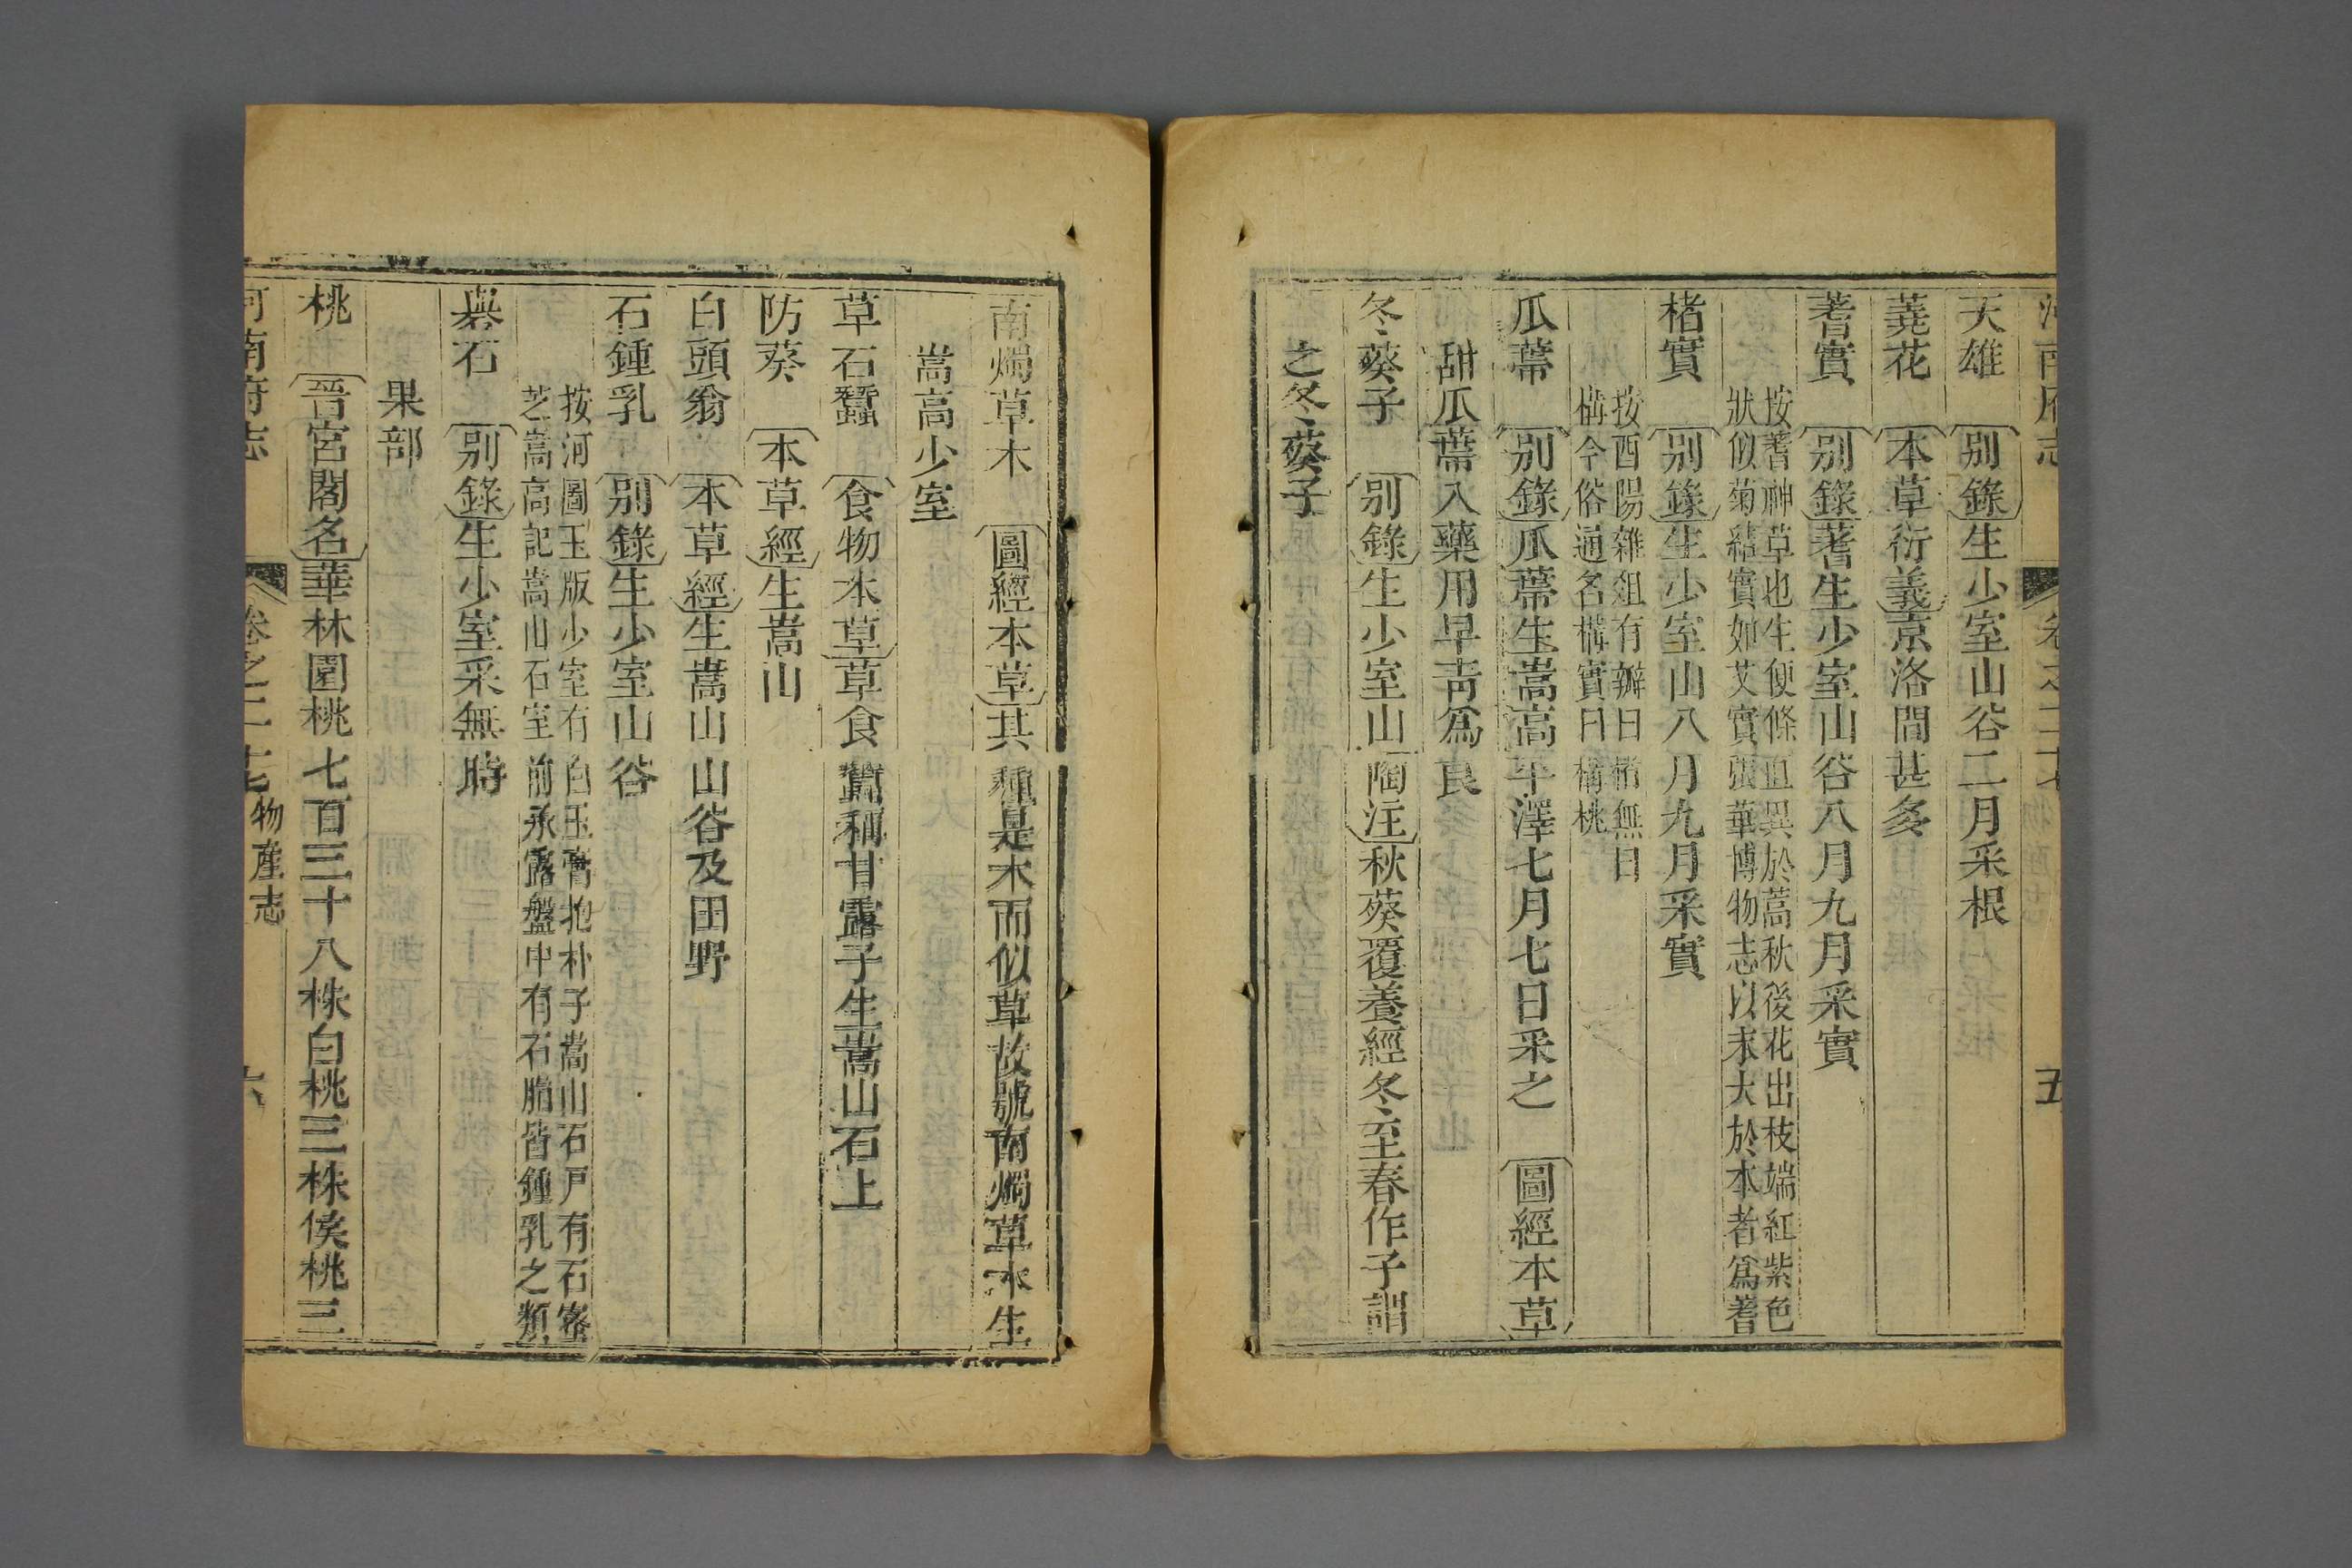 河南府志 卷之二十七 五
天雄 别錄生少室山谷二月采根
蕘花 本草衍義京洛間甚多
蓍實 别錄蓍生少室山谷八月九月采實
按蓍神草也生便條直異於蒿秋後花出枝端紅紫色
狀似菊結實如艾實張華博物志以末大於本者爲蓍
楮實 别錄生少室山八月九月采實
按酉陽雜俎有瓣曰楮無曰
構今俗通名構實曰構桃
瓜蔕 别錄瓜蔕生嵩高平澤七月七日采之 圖經本草
甜瓜蔕入藥用早靑爲良
冬葵子 别錄生少室山陶注秋葵覆養經冬至春作子謂
之冬葵子
南燭草木 圖經本草其種是木而似草故號南燭草木生
嵩高少室
草石蠶 食物本草草食蠶稱甘露子生嵩山石上
防葵 本草經生嵩山
白頭翁 本草經生嵩山山谷及田野
石鍾乳 别錄生少室山谷
按河圖玉版少室有白玉膏抱朴子嵩山石戸有石蜜
芝嵩高記嵩山石室前承露盤中有石脂皆鍾乳之類
礜石 别錄生少室采無時
果部
桃 晉宮閣名華林園桃七百三十八株白桃三株侯桃三
河南府志 卷之二十七 物產志 六